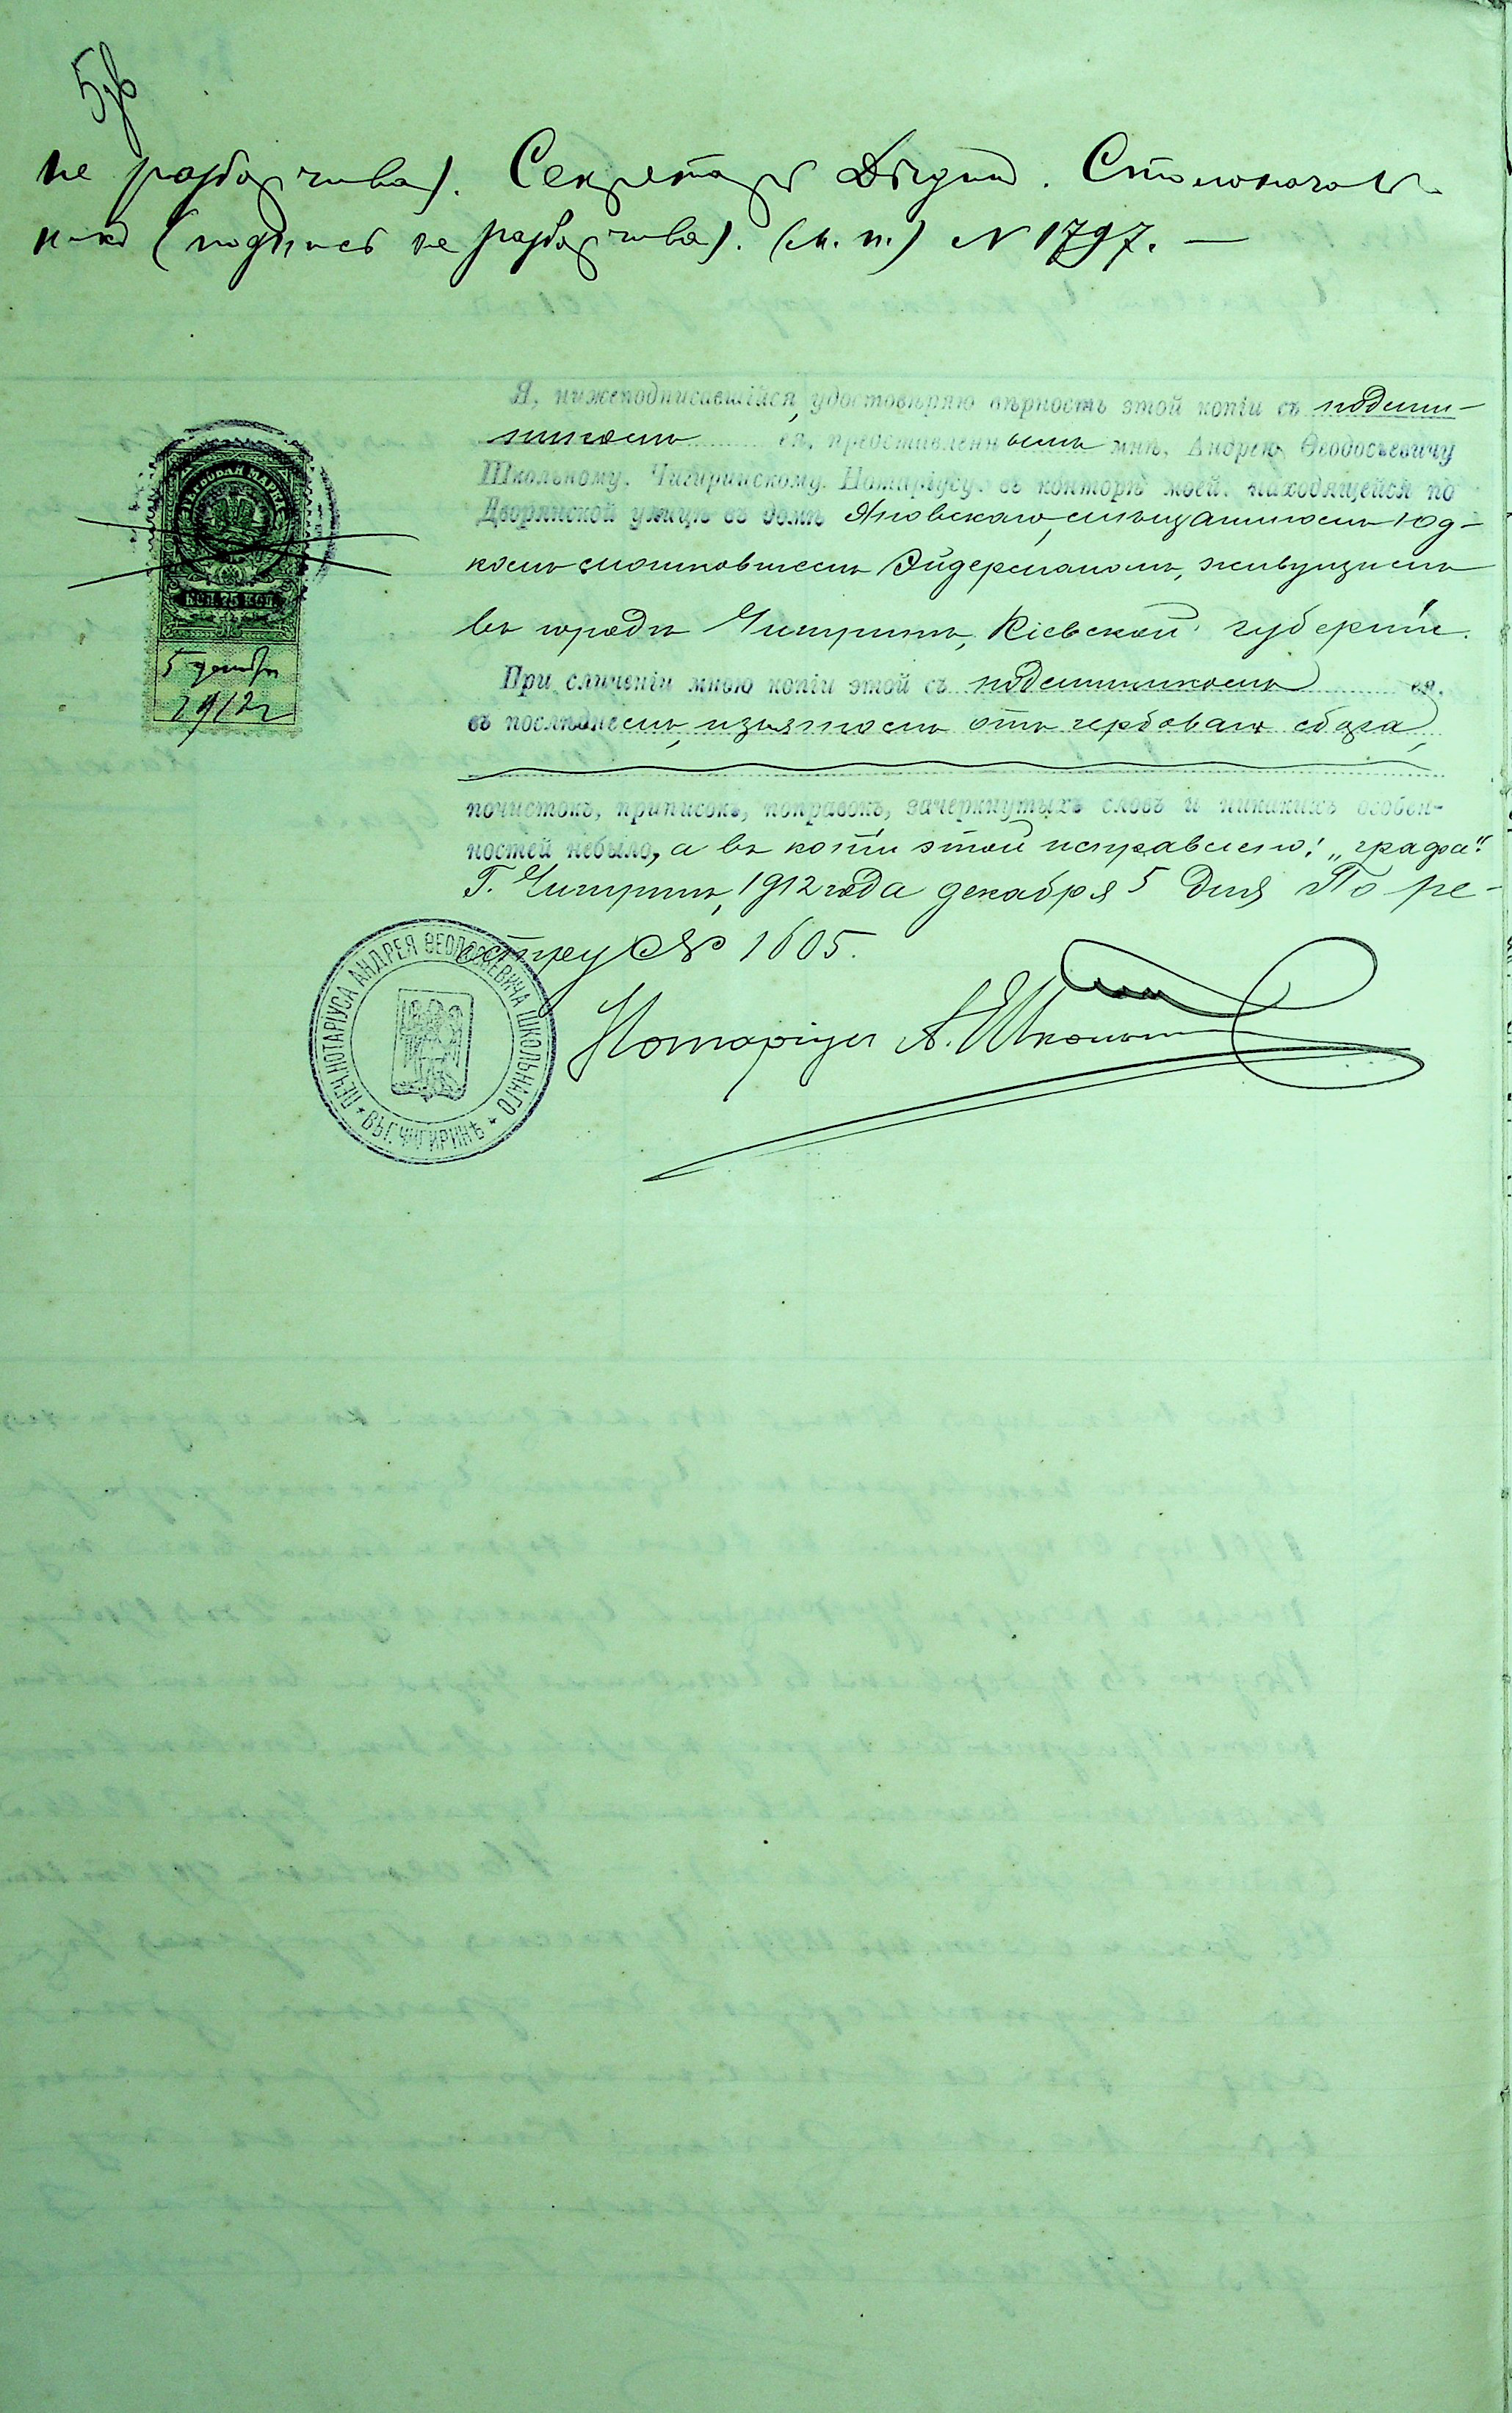 5об
не разборчива). Секретарь Столоначаль-
никъ (подпись не разборчива). (М. п.) N 1797. —
Я, нижеподписавшійся, удостовѣряю вѣрность этой копіи съ подлин-
никомъ ея, представленнымъ мнѣ, Андрею Ѳеодосьевичу
Школьному, Чигиринскому Нотаріусу, въ конторѣ моей, находящейся по
Дворянской улицѣ въ домѣ Яновскаго, мѣщаниномъ Юд-
комъ Эйдерманомъ, живущимъ
въ городѣ Чигиринѣ, Кіевской губерніи.
При сличеніи мною копіи этой съ подлинникомъ ея,
въ послѣднемъ, изъятомъ отъ гербоваго сбора,
почистокъ, приписокъ, поправокъ, зачеркнутыхъ словъ и никакихъ особен-
ностей небыло, а въ копіи этой исправлено: „графа“.
Г. Чигиринъ, 1912 года декабря 5 дня По ре-
естру № 1605.
Нотаріусъ А. Школьный
ГЕРБОВАЯ МАРКА
75 КОП.
5 декабря
1912 г
ПЕЧ. НОТАРІУСА АНДРЕЯ ѲЕОДОСЬЕВИЧА ШКОЛЬНАГО
ВЪ Г. ЧИГИРИНѢ